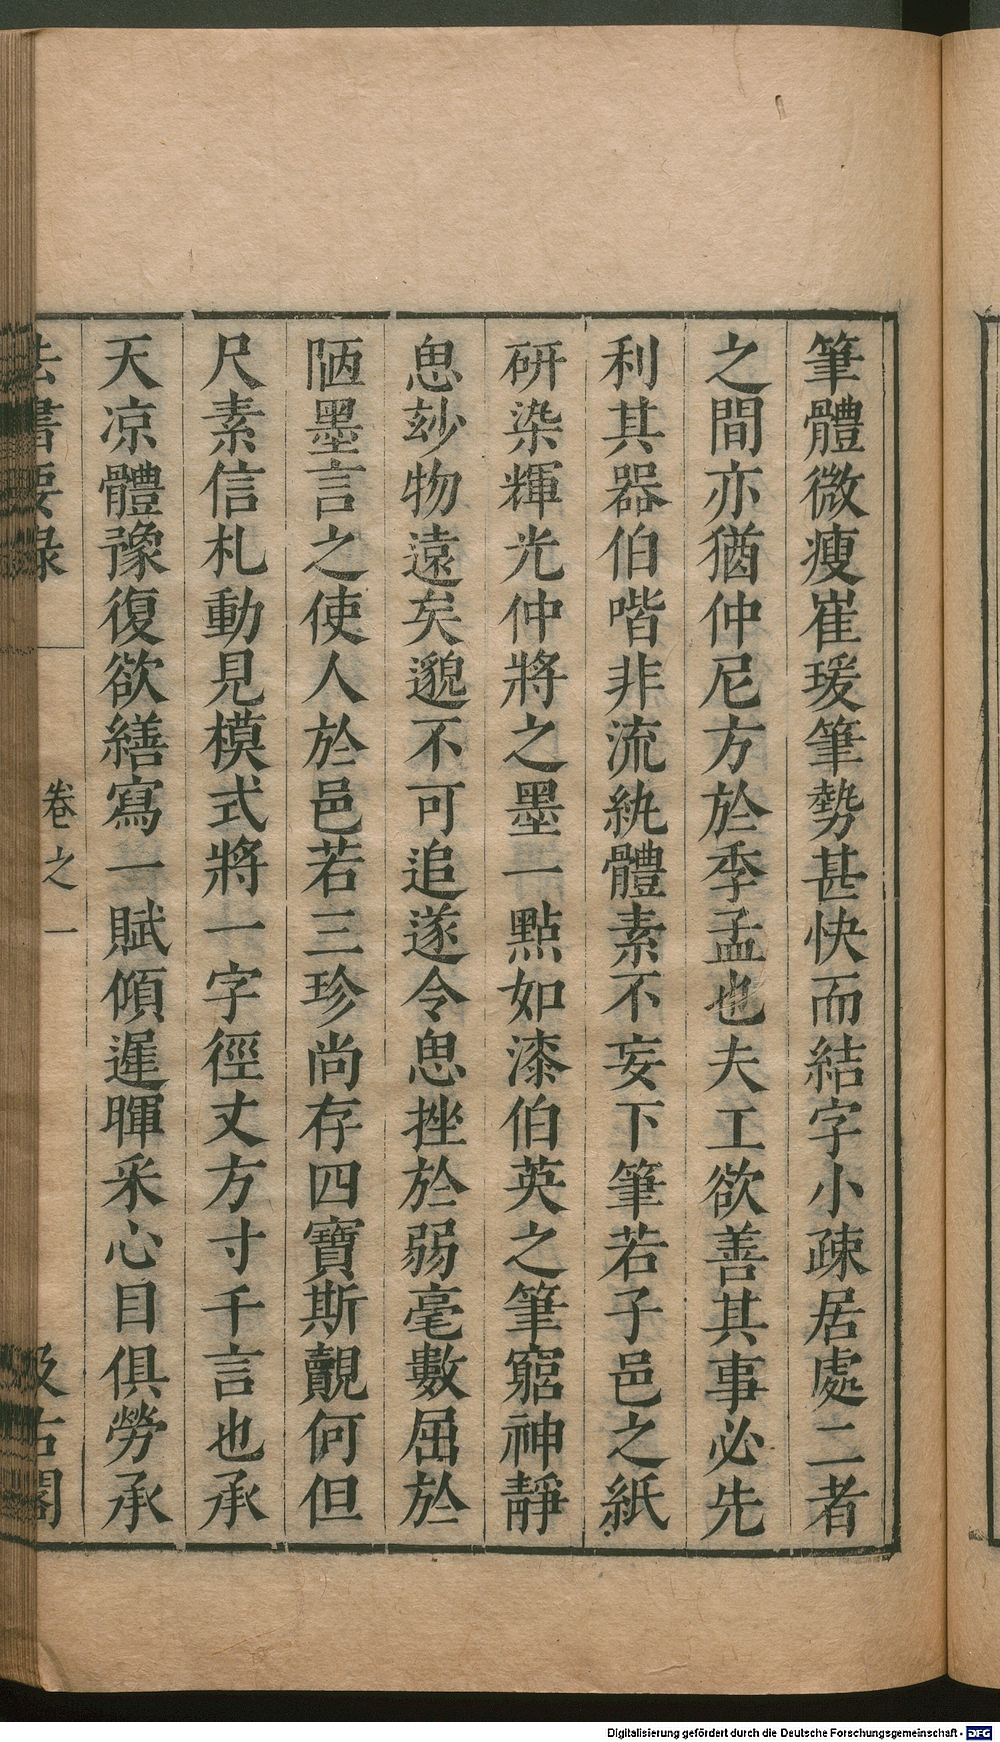 筆體微瘦崔瑗筆勢甚快而結字小疎居處二者
之間亦猶仲尼方於季孟也夫工欲善其事必先
利其器伯喈非流紈體素不妄下筆若子邑之紙
研染輝光仲將之墨一點如漆伯英之筆窮神靜
思玅物遠矣邈不可追遂令思挫於弱毫數屈於
陋墨言之使人於邑若三珍尚存四寶斯覿何但
尺素信札動見模式將一字徑丈方寸千言也承
天凉體豫復欲繕寫一賦傾遲暉采心目俱勞承
法書要錄
卷之一
汲古閣
Digitalisierung gefördert durch die Deutsche Forschungsgemeinschaft - DFG